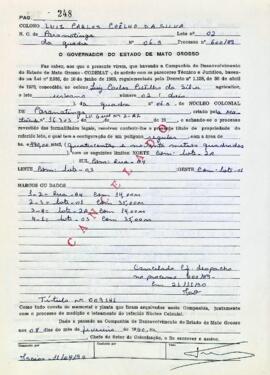 PAG. 248
COLONO LUIZ CARLOS COÊLHO DA SILVA
N. C. de Paranatinga LOTE 02
da quadra nº 06.a PROCESSO 600/89
O GOVERNADOR DO ESTADO DE MATO GROSSO
Faz saber, aos que o presente virem, que havendo a Companhia de Desenvolvimento
do Estado de Mato Grosso - CODEMAT, de acordo com os pareceres Técnico e Jurídico, basean-
do na Lei nº
regulamentada pelo Decreto nº 1.138, de 30 de abril
de 1970, concedido ao colono Luiz Carlos agricultor,
o lote urbano número 02 (dois)
da quadra nº 06.a DO NÚCLEO COLONIAL
DE Paranatinga
e achando-se o processo
revestido das formalidades legais, resolveu conferir-lhe o presente título de propriedade do
referido lote, o qual tem a configuração de um polígono regular com a área
490,00 (quatrocentos e noventa metros quadrados
com os seguintes limites NORTE com: lote-2A
SUL com: Rua-04
LESTE com: lote-03 OESTE com: lote-01
MARCOS OU DADOS
1-2= Rua-04 com 14,00m
2-3= lote-03 com 35,00m
3-4= lote-2A com 14,00m
4-1= lote-01 com 35,00m
CANCELADO
Cancelado cf. despacho
no processo
Em 21/11/90
Título nº
Tudo como consta do memorial e planta que foram arquivados nesta Companhia, juntamente
com o processo de medição e loteamento do referido Núcleo Colonial.
Dado e passado na Companhia de Desenvolvimento do Estado de Mato Grosso
aos 08 dias do mês de fevereiro de 1990.
Chefe do Setor de Colonização, o fiz escrever e assino.